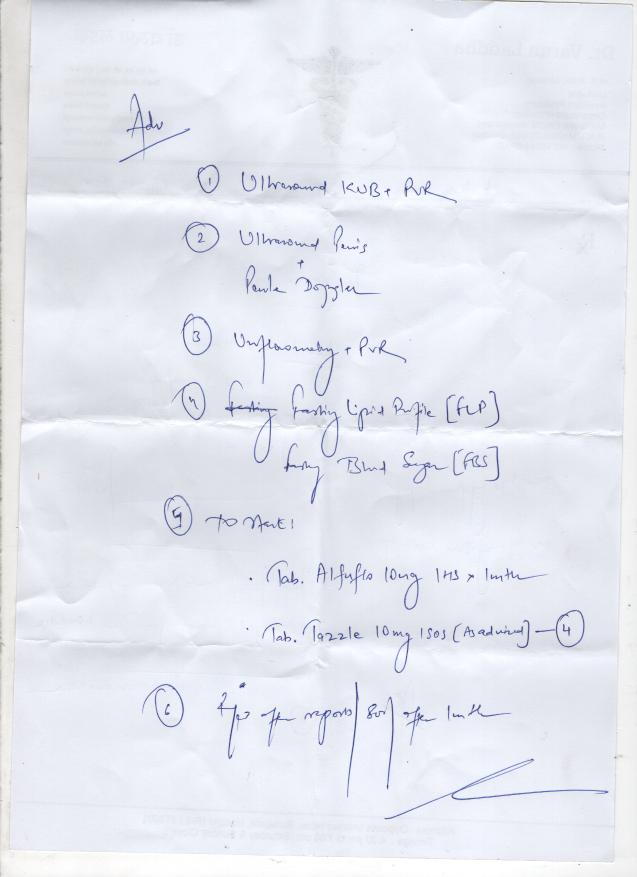 Adv
① Ultrasound KUB + PVR
② Ultrasound Penis
+
Penile Doppler
③ Uroflowmetry + PVR
④ Fasting Fasting Lipid Profile [FLP]
Fasting Blood Sugar [FBS]
⑤ To start:
· Tab. Alfusflo 10mg 1HS x 1mth
· Tab. Tazzle 10mg 1SOS [As advised] — ④
⑥ after reports / SOS / after 1mth